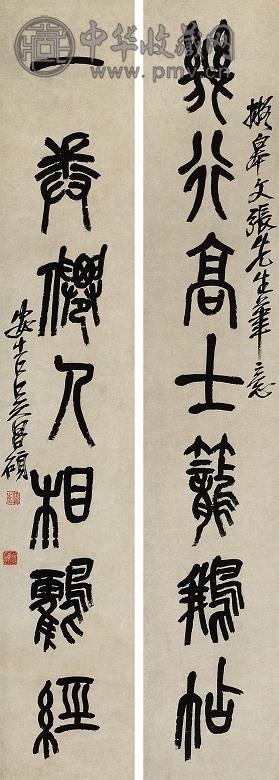 中华收藏网
www.pmv.cn
擬皋文張先生筆意
幾行高士籠鵝帖
一卷僊人相鶴經
安吉吳昌碩